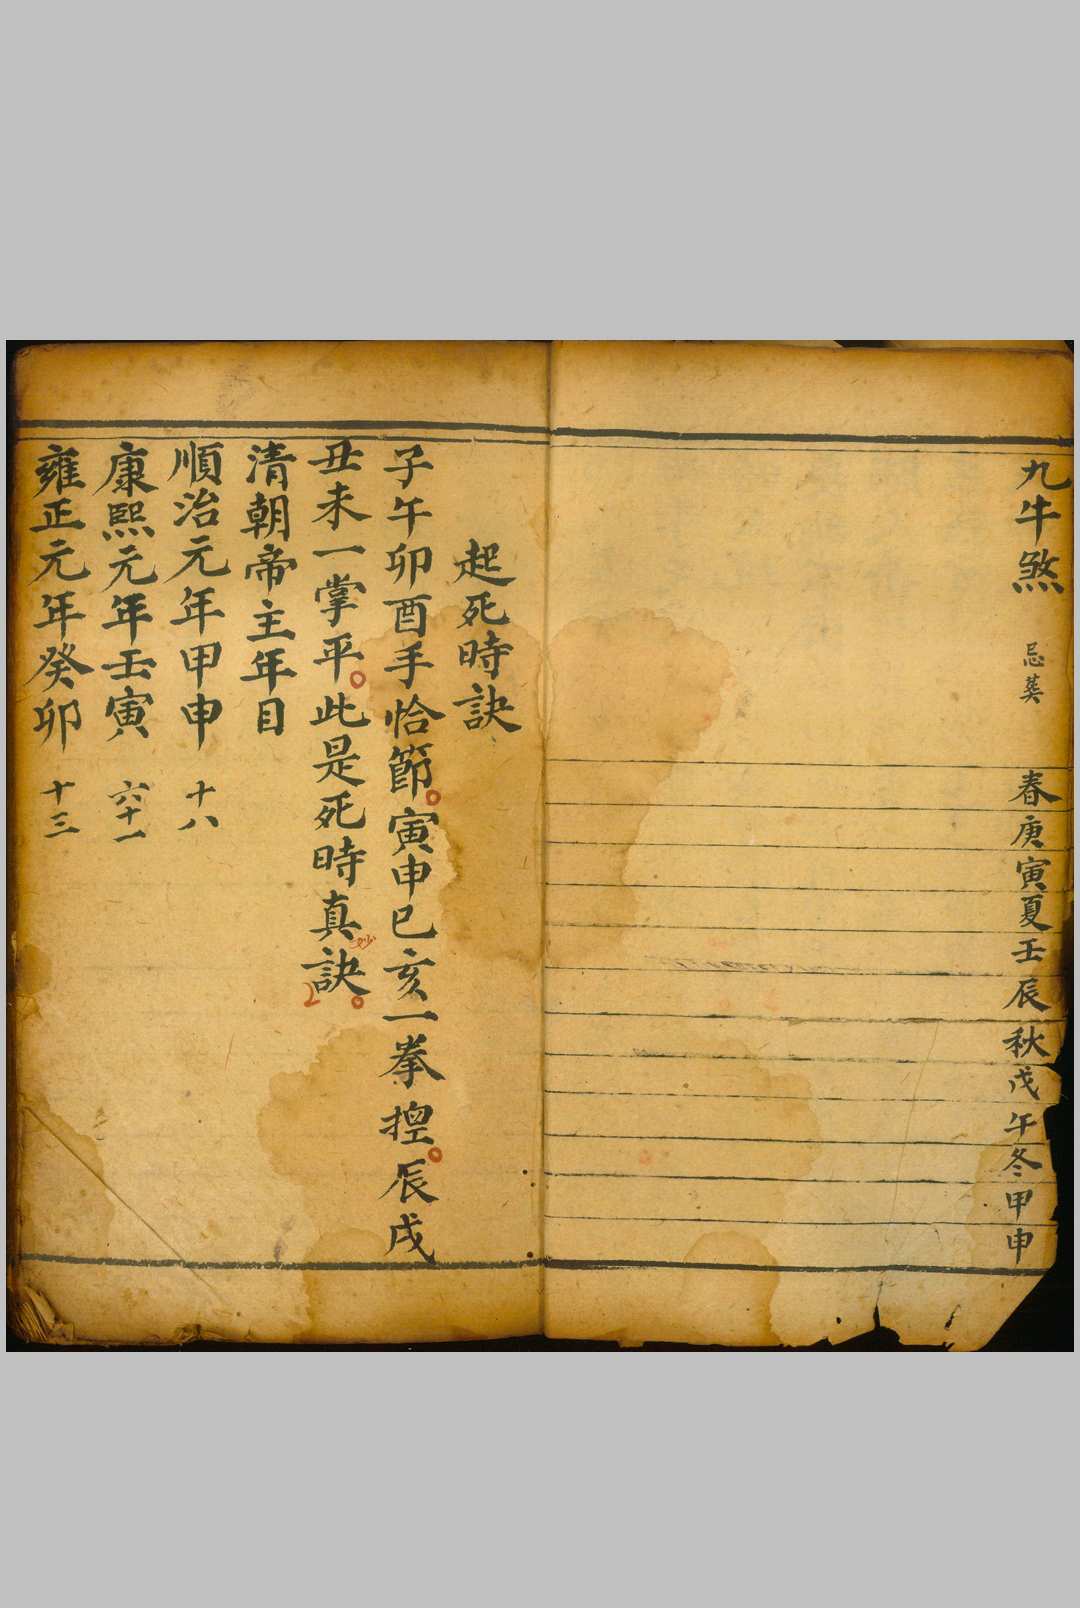 九牛煞 忌葬 春庚寅夏壬辰秋戊午冬甲申
起死時訣
子午卯酉手恰節寅申巳亥一拳控辰戌
丑未一掌平此是死時真訣
清朝帝主年目
順治元年甲申 十八
康熙元年壬寅 六十一
雍正元年癸卯 十三